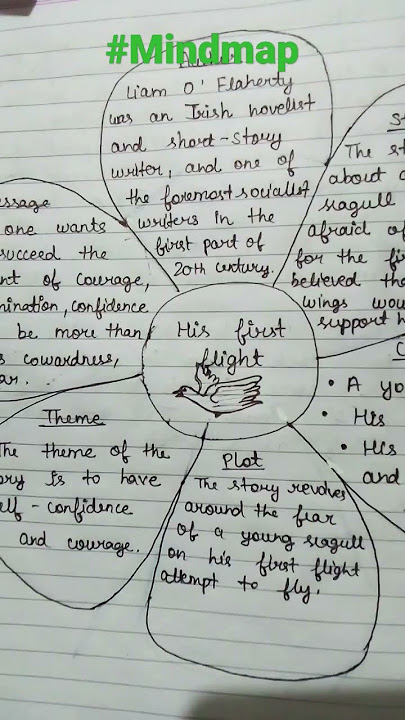 #Mindmap
Liam O' Flaherty
was an Irish novelist
and short-story
writer, and one of
the foremost socialist
writers in the
first part of
20th century.
The st
about a
seagull
afraid of
for the fi
believed tha
wings wou
support h
essage
one wants
succeed the
nt of courage,
mination, confidence
be more than
s cowardness,
ar.
His first
flight
C
• A yo
• His
• His
and
Theme
The theme of the
ory is to have
elf-confidence
and courage.
Plot
The story revolves
around the fear
of a young seagull
on his first flight
attempt to fly.